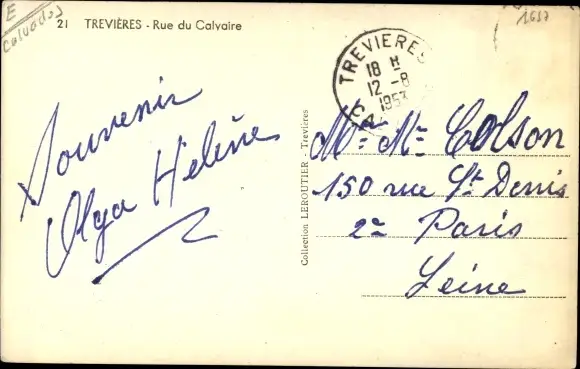 E
Calvados
21 TREVIÈRES - Rue du Calvaire
1617
TREVIERES
18 H
12 - 8
1953
CA
Souvenir
Olga Hélène
Collection LEROUTIER - Trevières
Mr Me Colson
150 rue St Denis
2e Paris
Seine